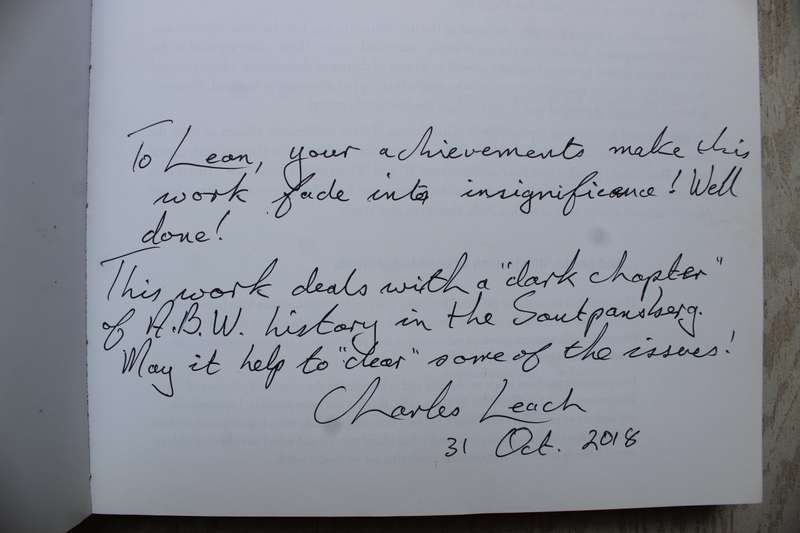 To Leon, your achievements make this
work fade into insignificance! Well
done!
This work deals with a "dark chapter"
of A.B.W. history in the Soutpansberg.
May it help to "clear" some of the issues!
Charles Leach
31 Oct. 2018